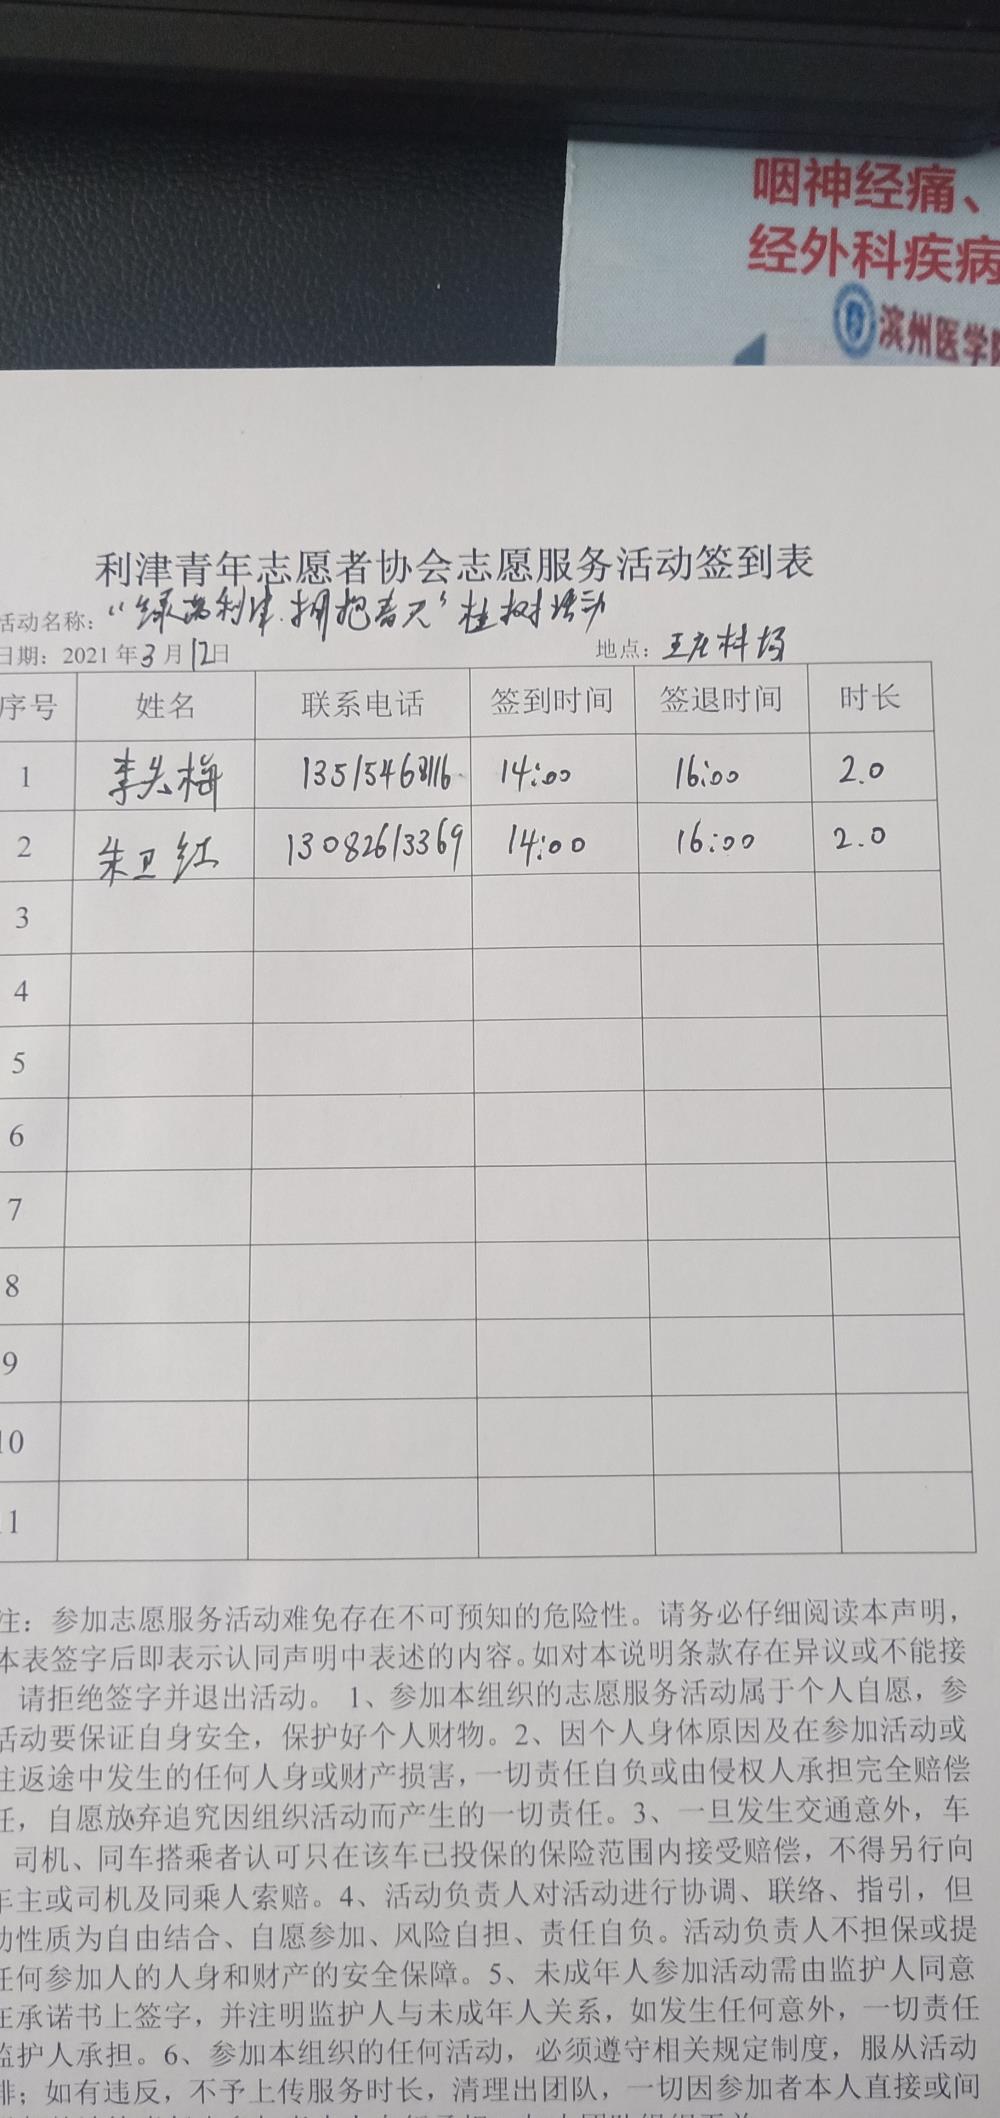 咽神经痛、
经外科疾病
滨州医学
利津青年志愿者协会志愿服务活动签到表
活动名称：“绿满利津.拥抱春天”植树活动
日期：2021年3月12日 地点：王庄林场
序号 姓名 联系电话 签到时间 签退时间 时长
1 李 梅 14:00 16:00 2.0
2 朱卫红 13082613369 14:00 16:00 2.0
3
4
5
6
7
8
9
10
11
注：参加志愿服务活动难免存在不可预知的危险性。请务必仔细阅读本声明，
本表签字后即表示认同声明中表述的内容。如对本说明条款存在异议或不能接
请拒绝签字并退出活动。1、参加本组织的志愿服务活动属于个人自愿，参
活动要保证自身安全，保护好个人财物。2、因个人身体原因及在参加活动或
往返途中发生的任何人身或财产损害，一切责任自负或由侵权人承担完全赔偿
任，自愿放弃追究因组织活动而产生的一切责任。3、一旦发生交通意外，车
司机、同车搭乘者认可只在该车已投保的保险范围内接受赔偿，不得另行向
车主或司机及同乘人索赔。4、活动负责人对活动进行协调、联络、指引，但
动性质为自由结合、自愿参加、风险自担、责任自负。活动负责人不担保或提
任何参加人的人身和财产的安全保障。5、未成年人参加活动需由监护人同意
在承诺书上签字，并注明监护人与未成年人关系，如发生任何意外，一切责任
监护人承担。6、参加本组织的任何活动，必须遵守相关规定制度，服从活动
排；如有违反，不予上传服务时长，清理出团队，一切因参加者本人直接或间